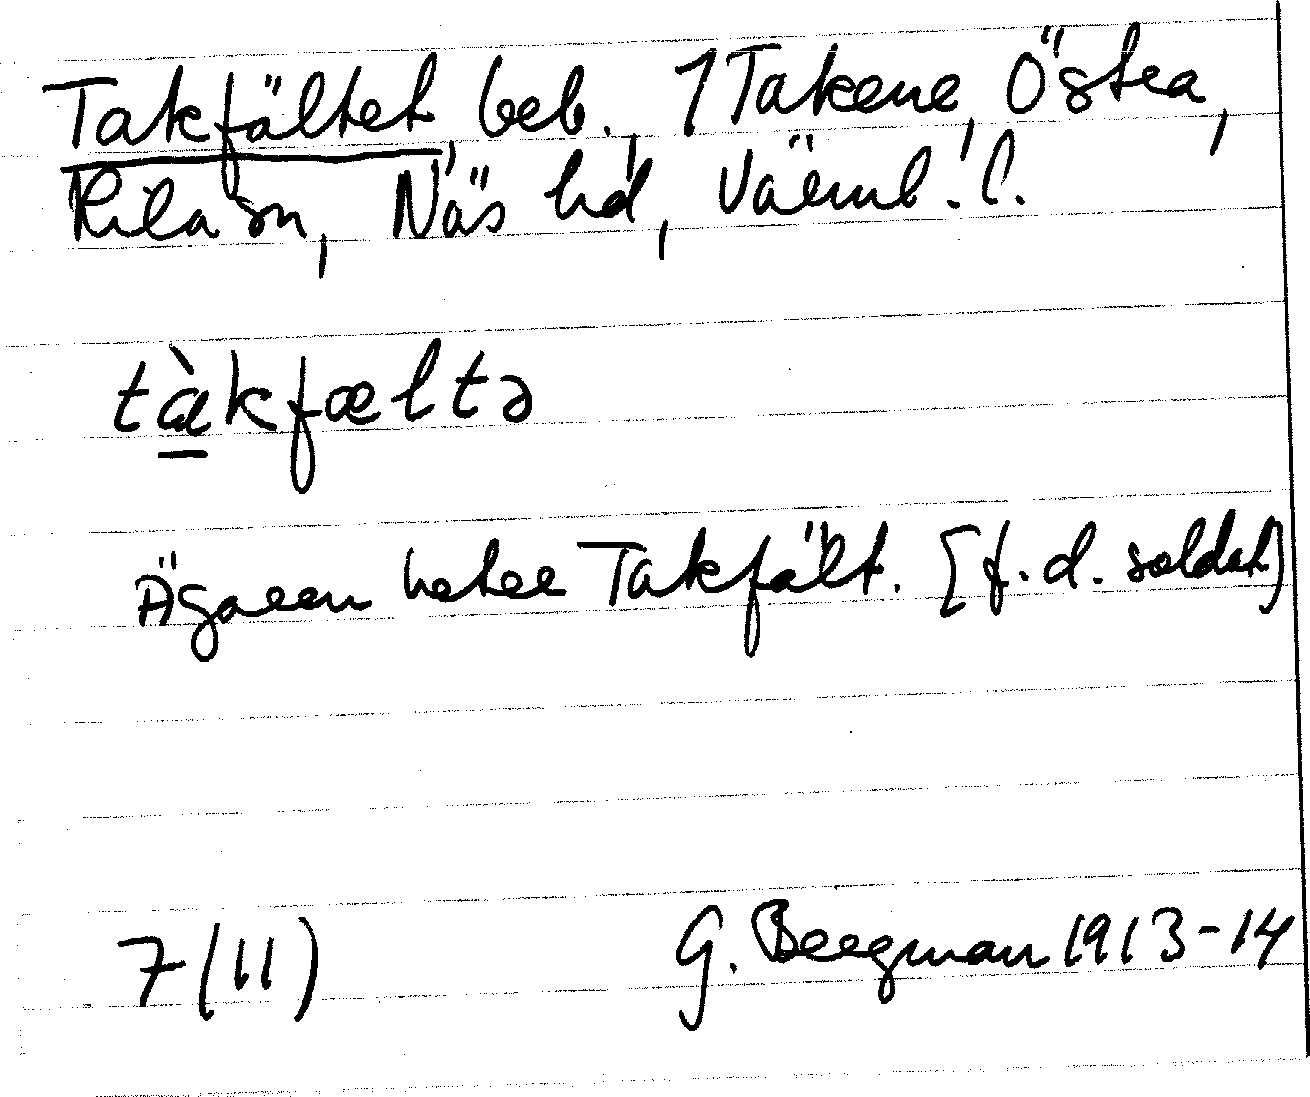 Takfältet, beb., 1 Takene, Östra,
Kila sn, Näs hd, Värml. l.
tàkfæltə
Ägaren heter Takfält. [f.d. soldat)
7 (11)
G. Bergman 1913-14